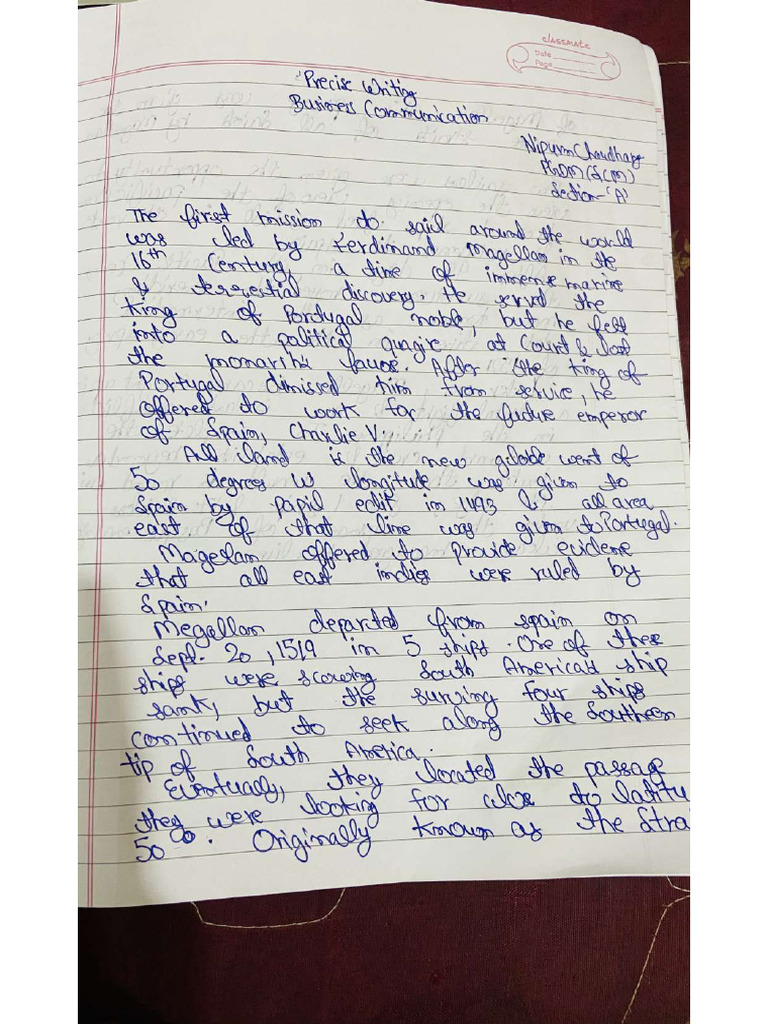 classmate
Date
Page
Precise Writing
Business Communication
Nipurn Choudhary
PGDM (SCM)
Section-'A'
The first mission to sail around the world
was led by Ferdinand Magellan in the
16th Century, a time of immense marine
& terrestial discovery. He served the
King of Portugal noble, but he fell
into a political quagire at Court & lost
the monarsh's favor. After the King of
Portugal dimissed him from service, he
offered to work for the future emperor
of Spain, Charlie V.
All land is the new globe went of
50 degrees W longitude was given to
Spain by papil edit in 1493 & all area
east of that line was given to Portugal.
Magellan offered to provide evidene
that all east indies were ruled by
Spain.
Megellan departed from spain on
Sept. 20, 1519 in 5 ships. One of these
ships were scowing South American ship
sank, but the surving four ships
continued to seek along the Southern
tip of South America.
Eventually, they located the passage
they were looking for close to latitu
50°. Originally known as the Stra